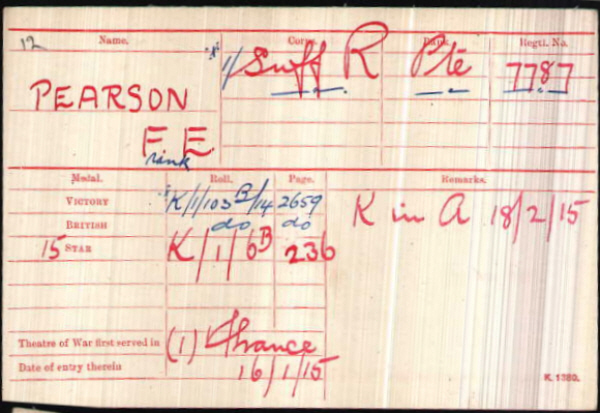 12
Name. Corps. Rank. Regtl. No.
"X" 1/ Suff R Pte 7787
PEARSON
F E
Frank
Medal. Roll. Page. Remarks.
VICTORY K/1/103 B/14 2659 K in A 18/2/15
BRITISH do do
15 STAR K/1/6B 236
Theatre of War first served in (1) France
Date of entry therein 16/1/15
K. 1380.